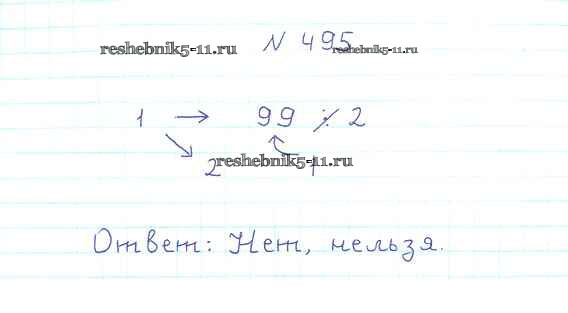 reshebnik5-11.ru N 495 reshebnik5-11.ru
1 → 99 ⁒ 2
2 reshebnik5-11.ru 1
Ответ: Нет, нельзя.